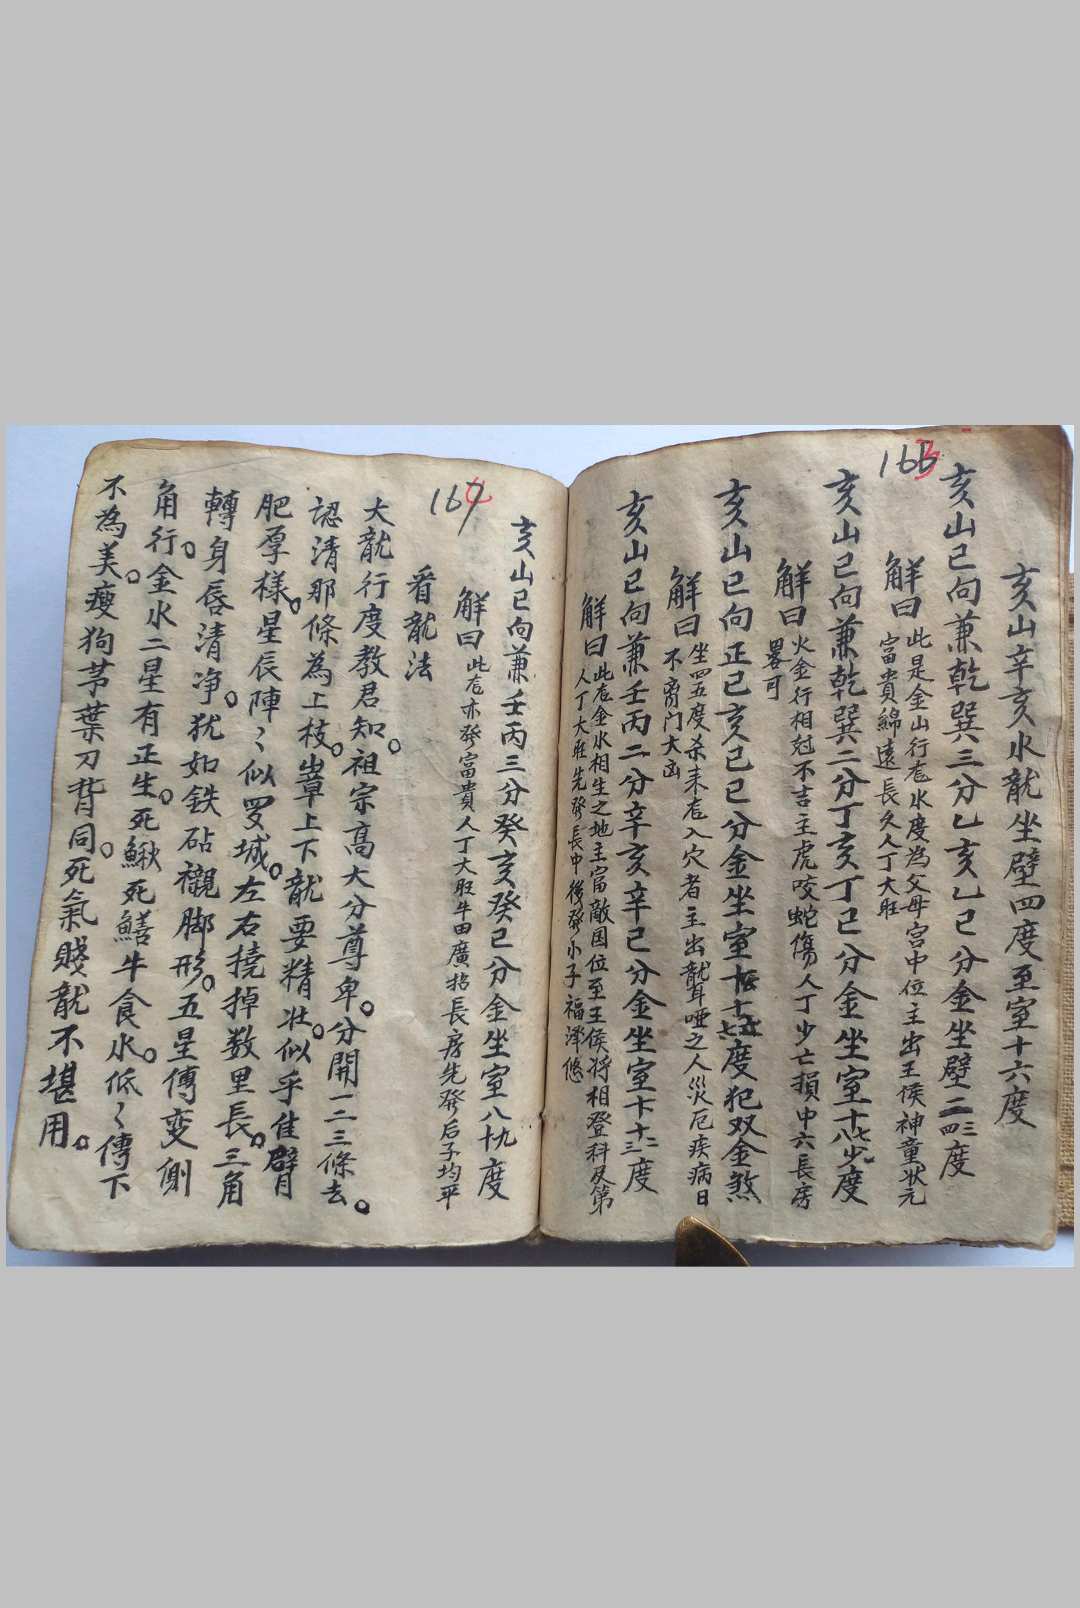 166
亥山辛亥水龍坐壁四度至室十六度
亥山巳向兼乾巽三分乙亥乙巳分金坐壁二三四度
解曰此是金山行庒水度為父母宫中位主出王侯神童狀元
富貴綿遠長久人丁大旺
亥山巳向兼乾巽二分丁亥丁巳分金坐室十七八少度
解曰火金行相尅不吉主虎咬蛇傷人丁少亡損中六長房
畧可
亥山巳向正巳亥己巳分金坐室十五度犯双金煞
解曰坐四五度杀耒庒入穴者主出聾啞之人災厄疾病日
不离门大凶
亥山巳向兼壬丙二分辛亥辛巳分金坐室十二三度
解曰此庒金水相生之地主富敵国位至王侯将相登科及第
人丁大旺先發長中後發小子福泽悠
167
亥山巳向兼壬丙三分癸亥癸巳分金坐室八九十度
解曰此庒亦發富貴人丁大旺牛田廣招長房先發后子均平
看龍法
大龍行度教君知。祖宗高大分尊卑。分開一二三條去。
認清那條為上枝。嶂上下龍要精壮。似乎隹臂
肥厚樣。星辰陣〻似罗城。左右撓掉数里長。三角
轉身唇清净。犹如鉄砧襯脚形。五星傳变側
角行。金水二星有正生。死鰍死鱔牛食水。低〻傳下
不為美。瘦狗茅葉刀背同。死氣賤龍不堪用。